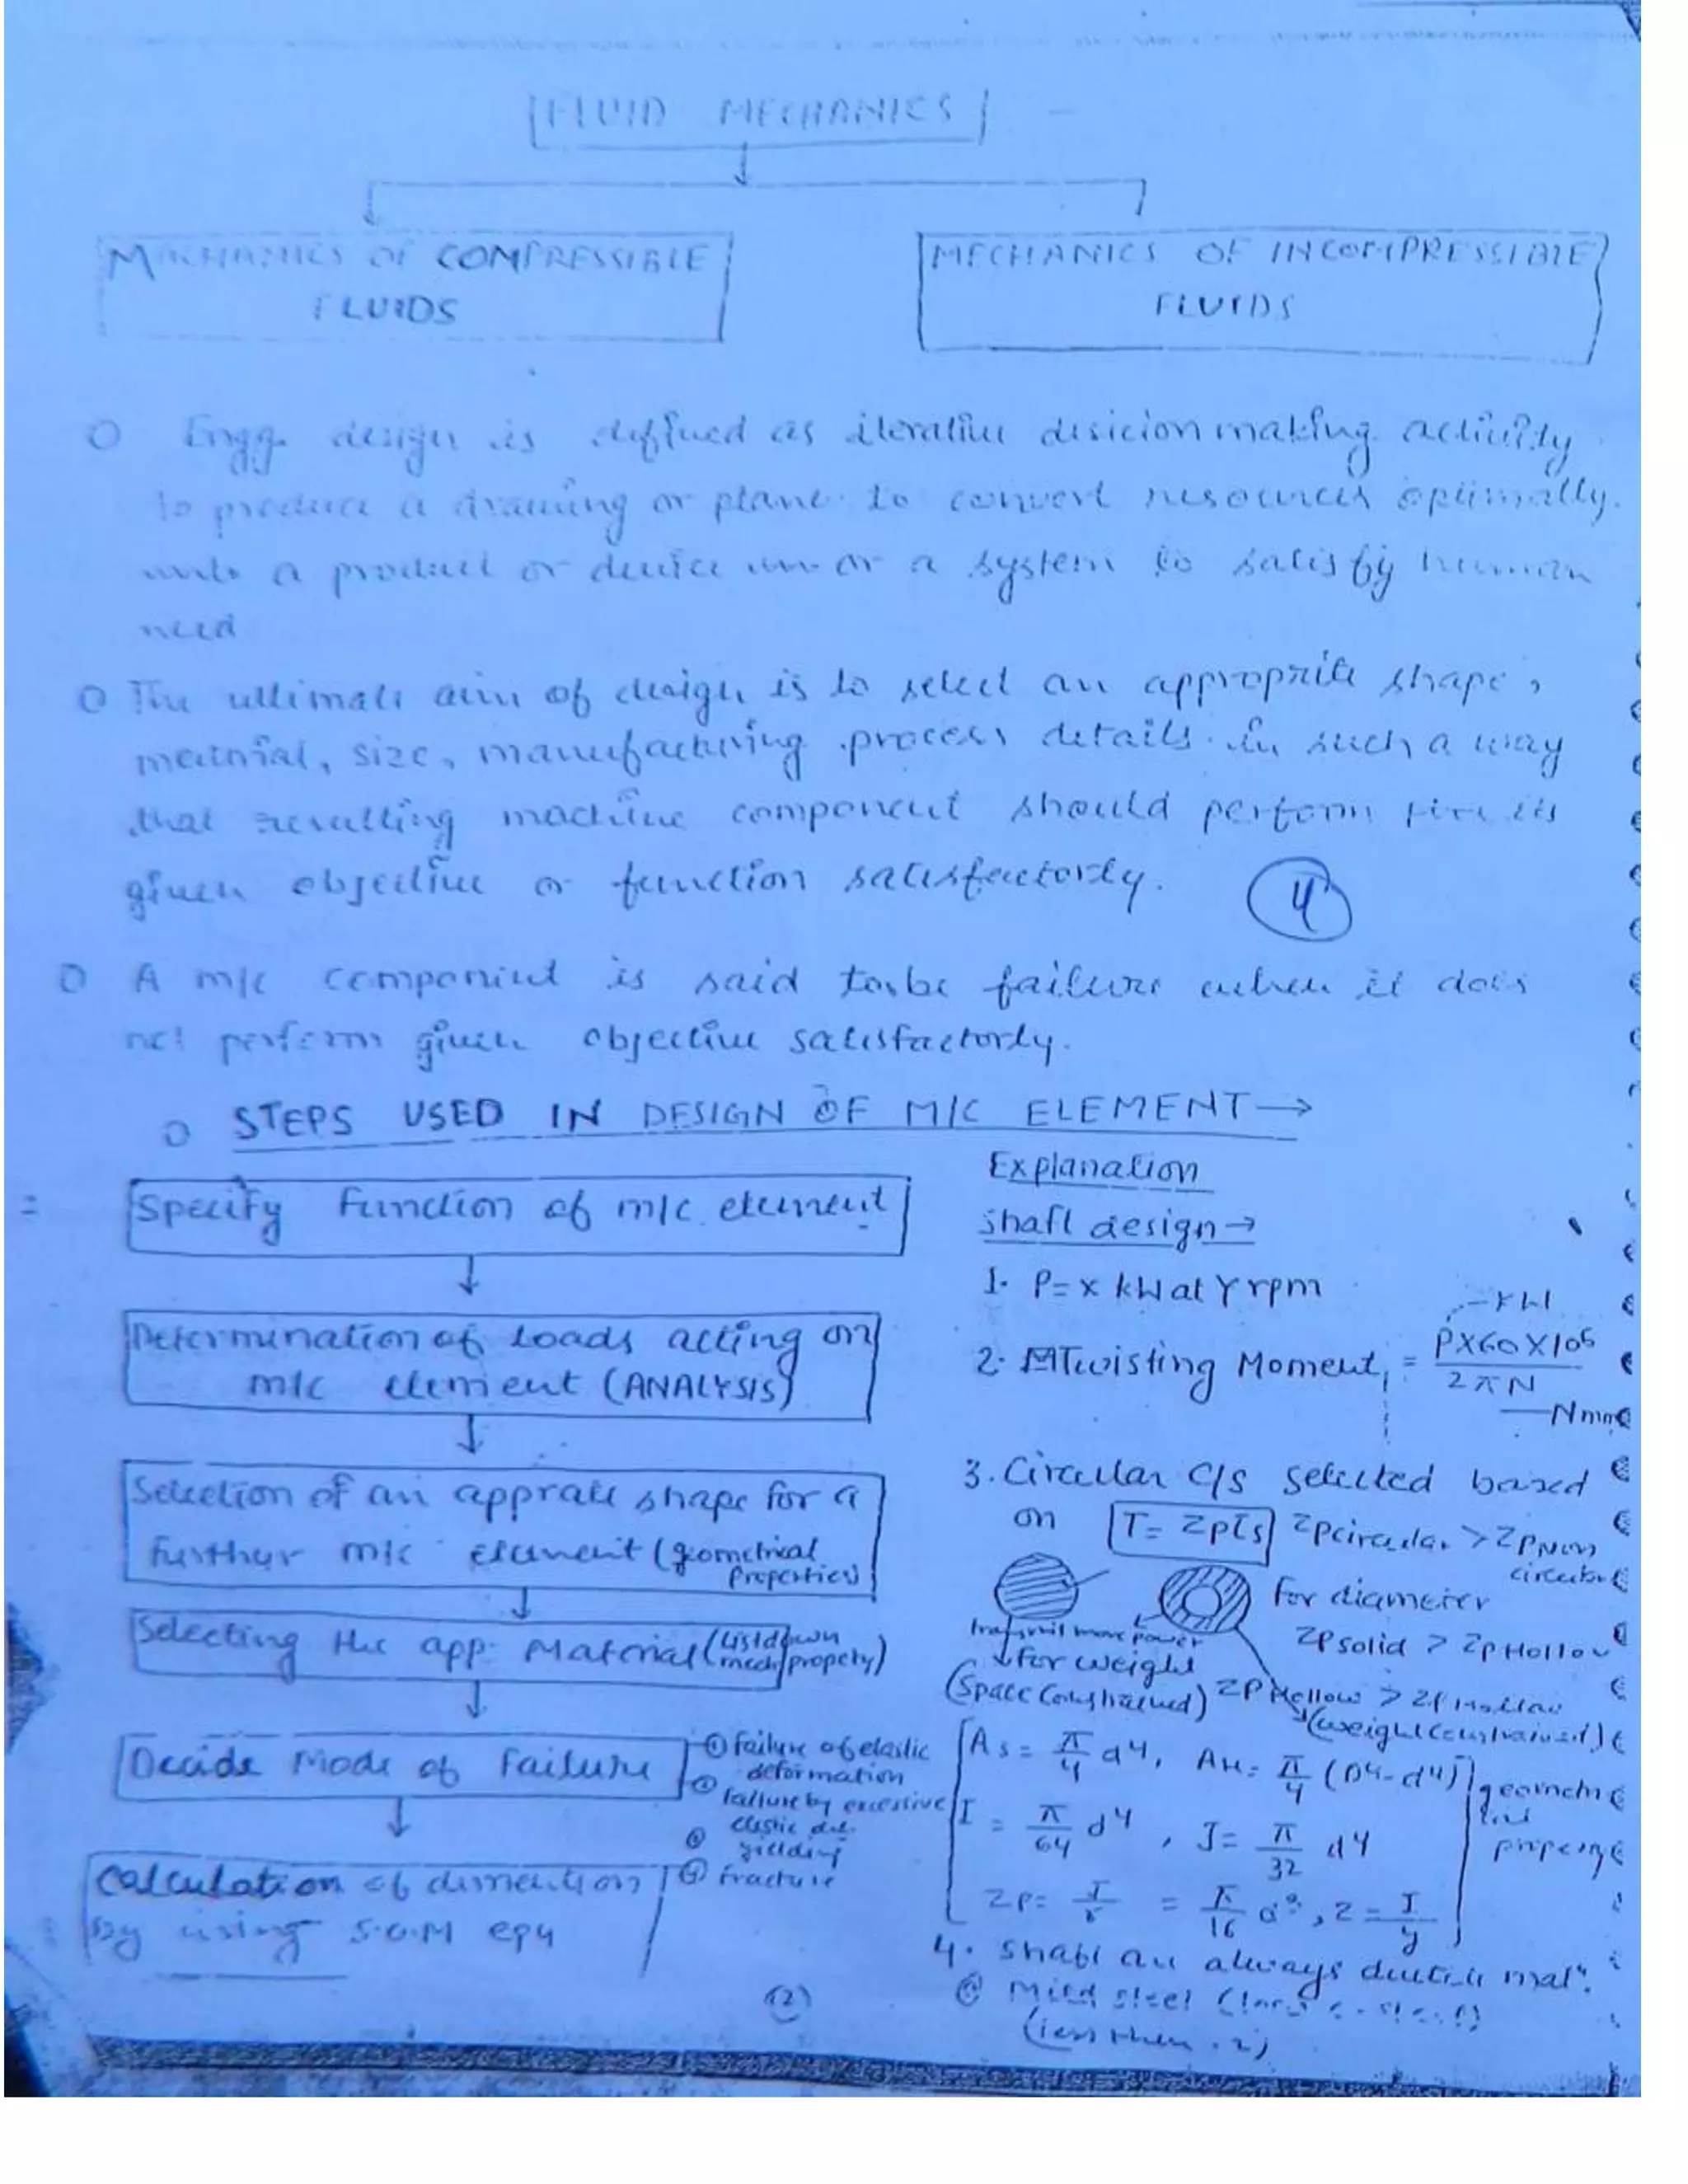 FLUID MECHANICS
MECHANICS OF COMPRESSIBLE
FLUIDS
MECHANICS OF INCOMPRESSIBLE
FLUIDS
O Engg. design is defined as iterative disicion making activity
to produce a drawing or plane to convert resources optimally.
unto a product or device or a system to satisfy human
need
O The ultimate aim of design is to select an appropriate shape,
material, size, manufacturing process details in such a way
that resulting machine component should perform its
given objective or function satisfactorly.
4
O A m/c component is said to be failure when it does
not perform given objective satisfactorly.
O STEPS USED IN DESIGN OF M/C ELEMENT →
Specify function of m/c element
Determination of Loads acting on
m/c element (ANALYSIS)
Selection of an apprate shape for a
furthur m/c element (geometrical
Properties)
Selecting the app. Material (Listdown
mech propety)
Decide Mode of Failure
① failure of elastic
deformation
failure by excessive
elastic def.
yielding
④ fracture
Calculation of dimention
by using S.O.M eqn
Explanation
Shaft design →
1. P = x kW at Y rpm
2. Twisting Moment, = P×60×10⁶ / 2πN
— Nmm
3. Circular C/s selected based
on T = Zpτs Zpcircular > ZpNon
circular
for diameter
Zp solid > Zp Hollow
transmit more power
for weight
(Space Constrained) ZP Hollow >
(weight constrained)
As = π/4 d⁴, AH = π/4 (D⁴-d⁴)
I = π/64 d⁴, J = π/32 d⁴
ZP = J/r = π/16 d³, Z = I/y
4. Shaft are always ductile mat.
Mild steel
(less then .2)
(2)